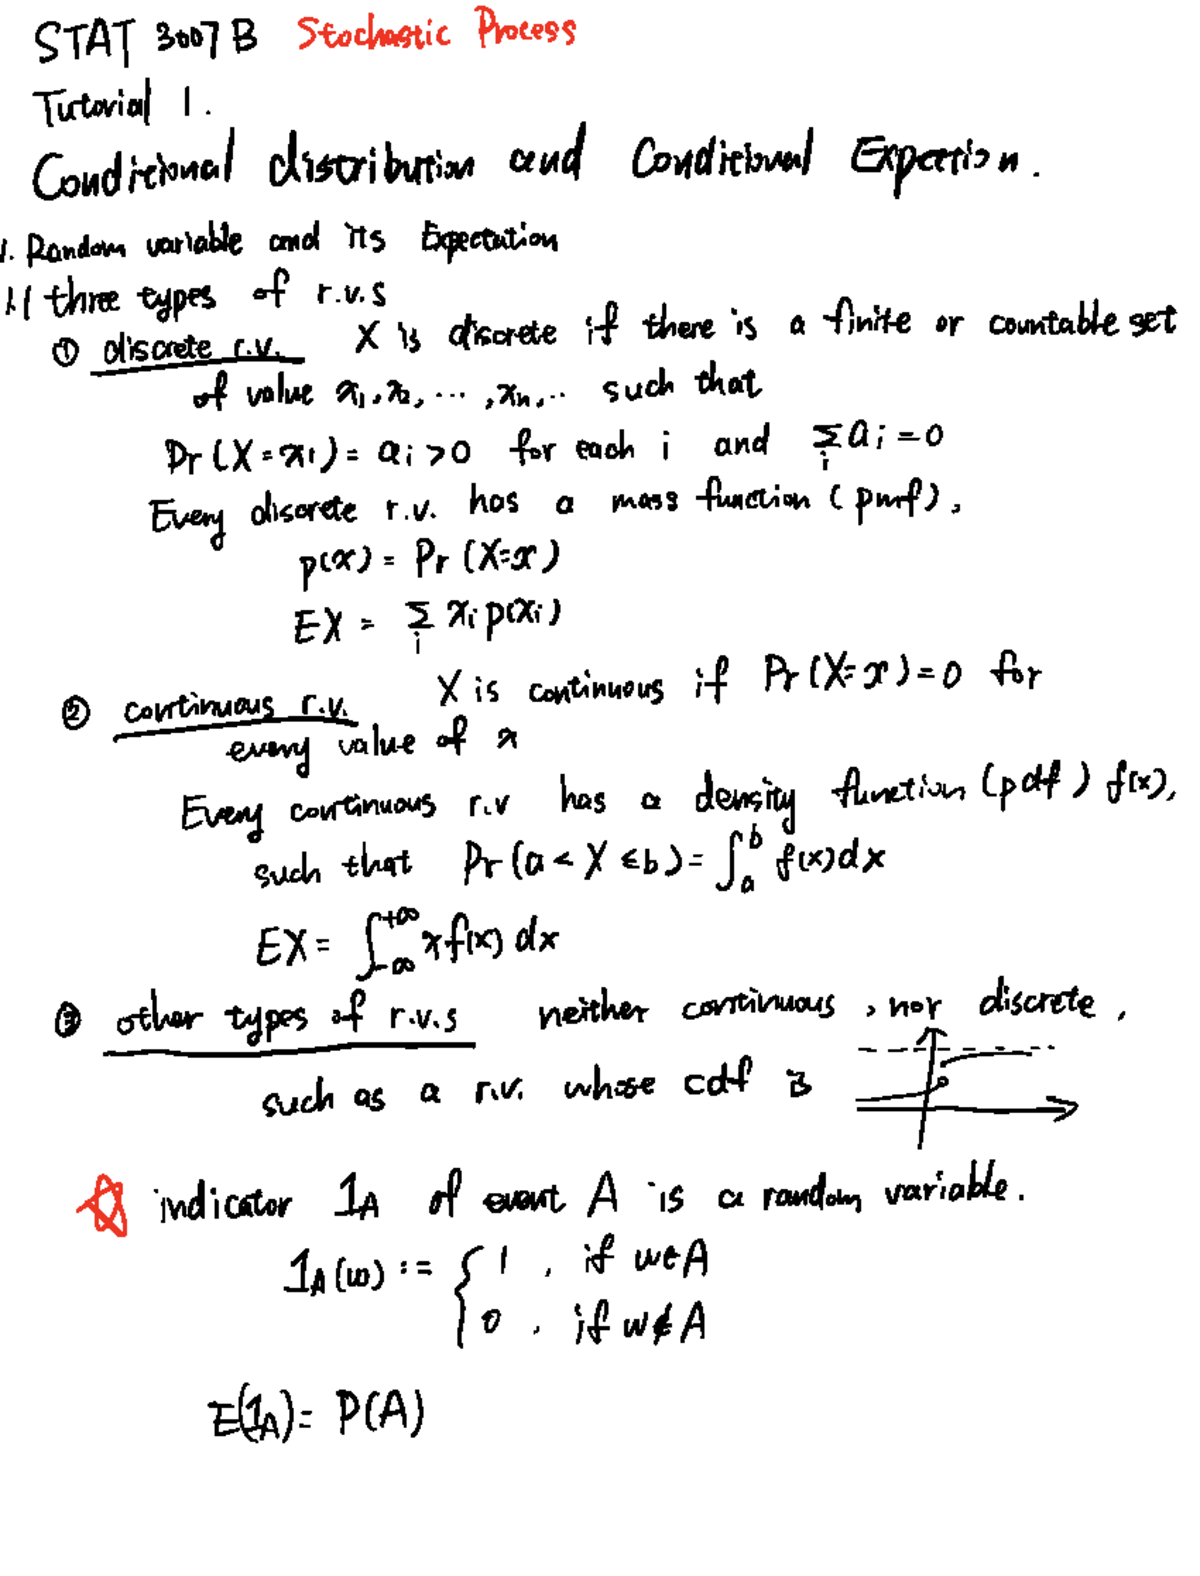 STAT 3007B Stochastic Process
Tutorial 1.
Conditional distribution and Conditional Expection.
1. Random variable and its Expectation
1.1 three types of r.v.s
① discrete r.v. X is discrete if there is a finite or countable set
of value x₁, x₂, ⋯, xₙ, ⋯ such that
Pr(X=xᵢ) = aᵢ > 0 for each i and Σᵢ aᵢ = 0
Every discrete r.v. has a mass function (pmf),
p(x) = Pr(X=x)
EX = Σᵢ xᵢ p(xᵢ)
② continuous r.v. X is continuous if Pr(X=x)=0 for
every value of x
Every continuous r.v has a density function (pdf) f(x),
such that Pr(a < X ≤ b) = ∫ₐᵇ f(x)dx
EX = ∫_{-∞}^{+∞} x f(x) dx
③ other types of r.v.s neither continuous, nor discrete,
such as a r.v. whose cdf is
indicator 1_A of event A is a random variable.
1_A(w) := { 1, if w∈A
0, if w∉A
E(1_A) = P(A)